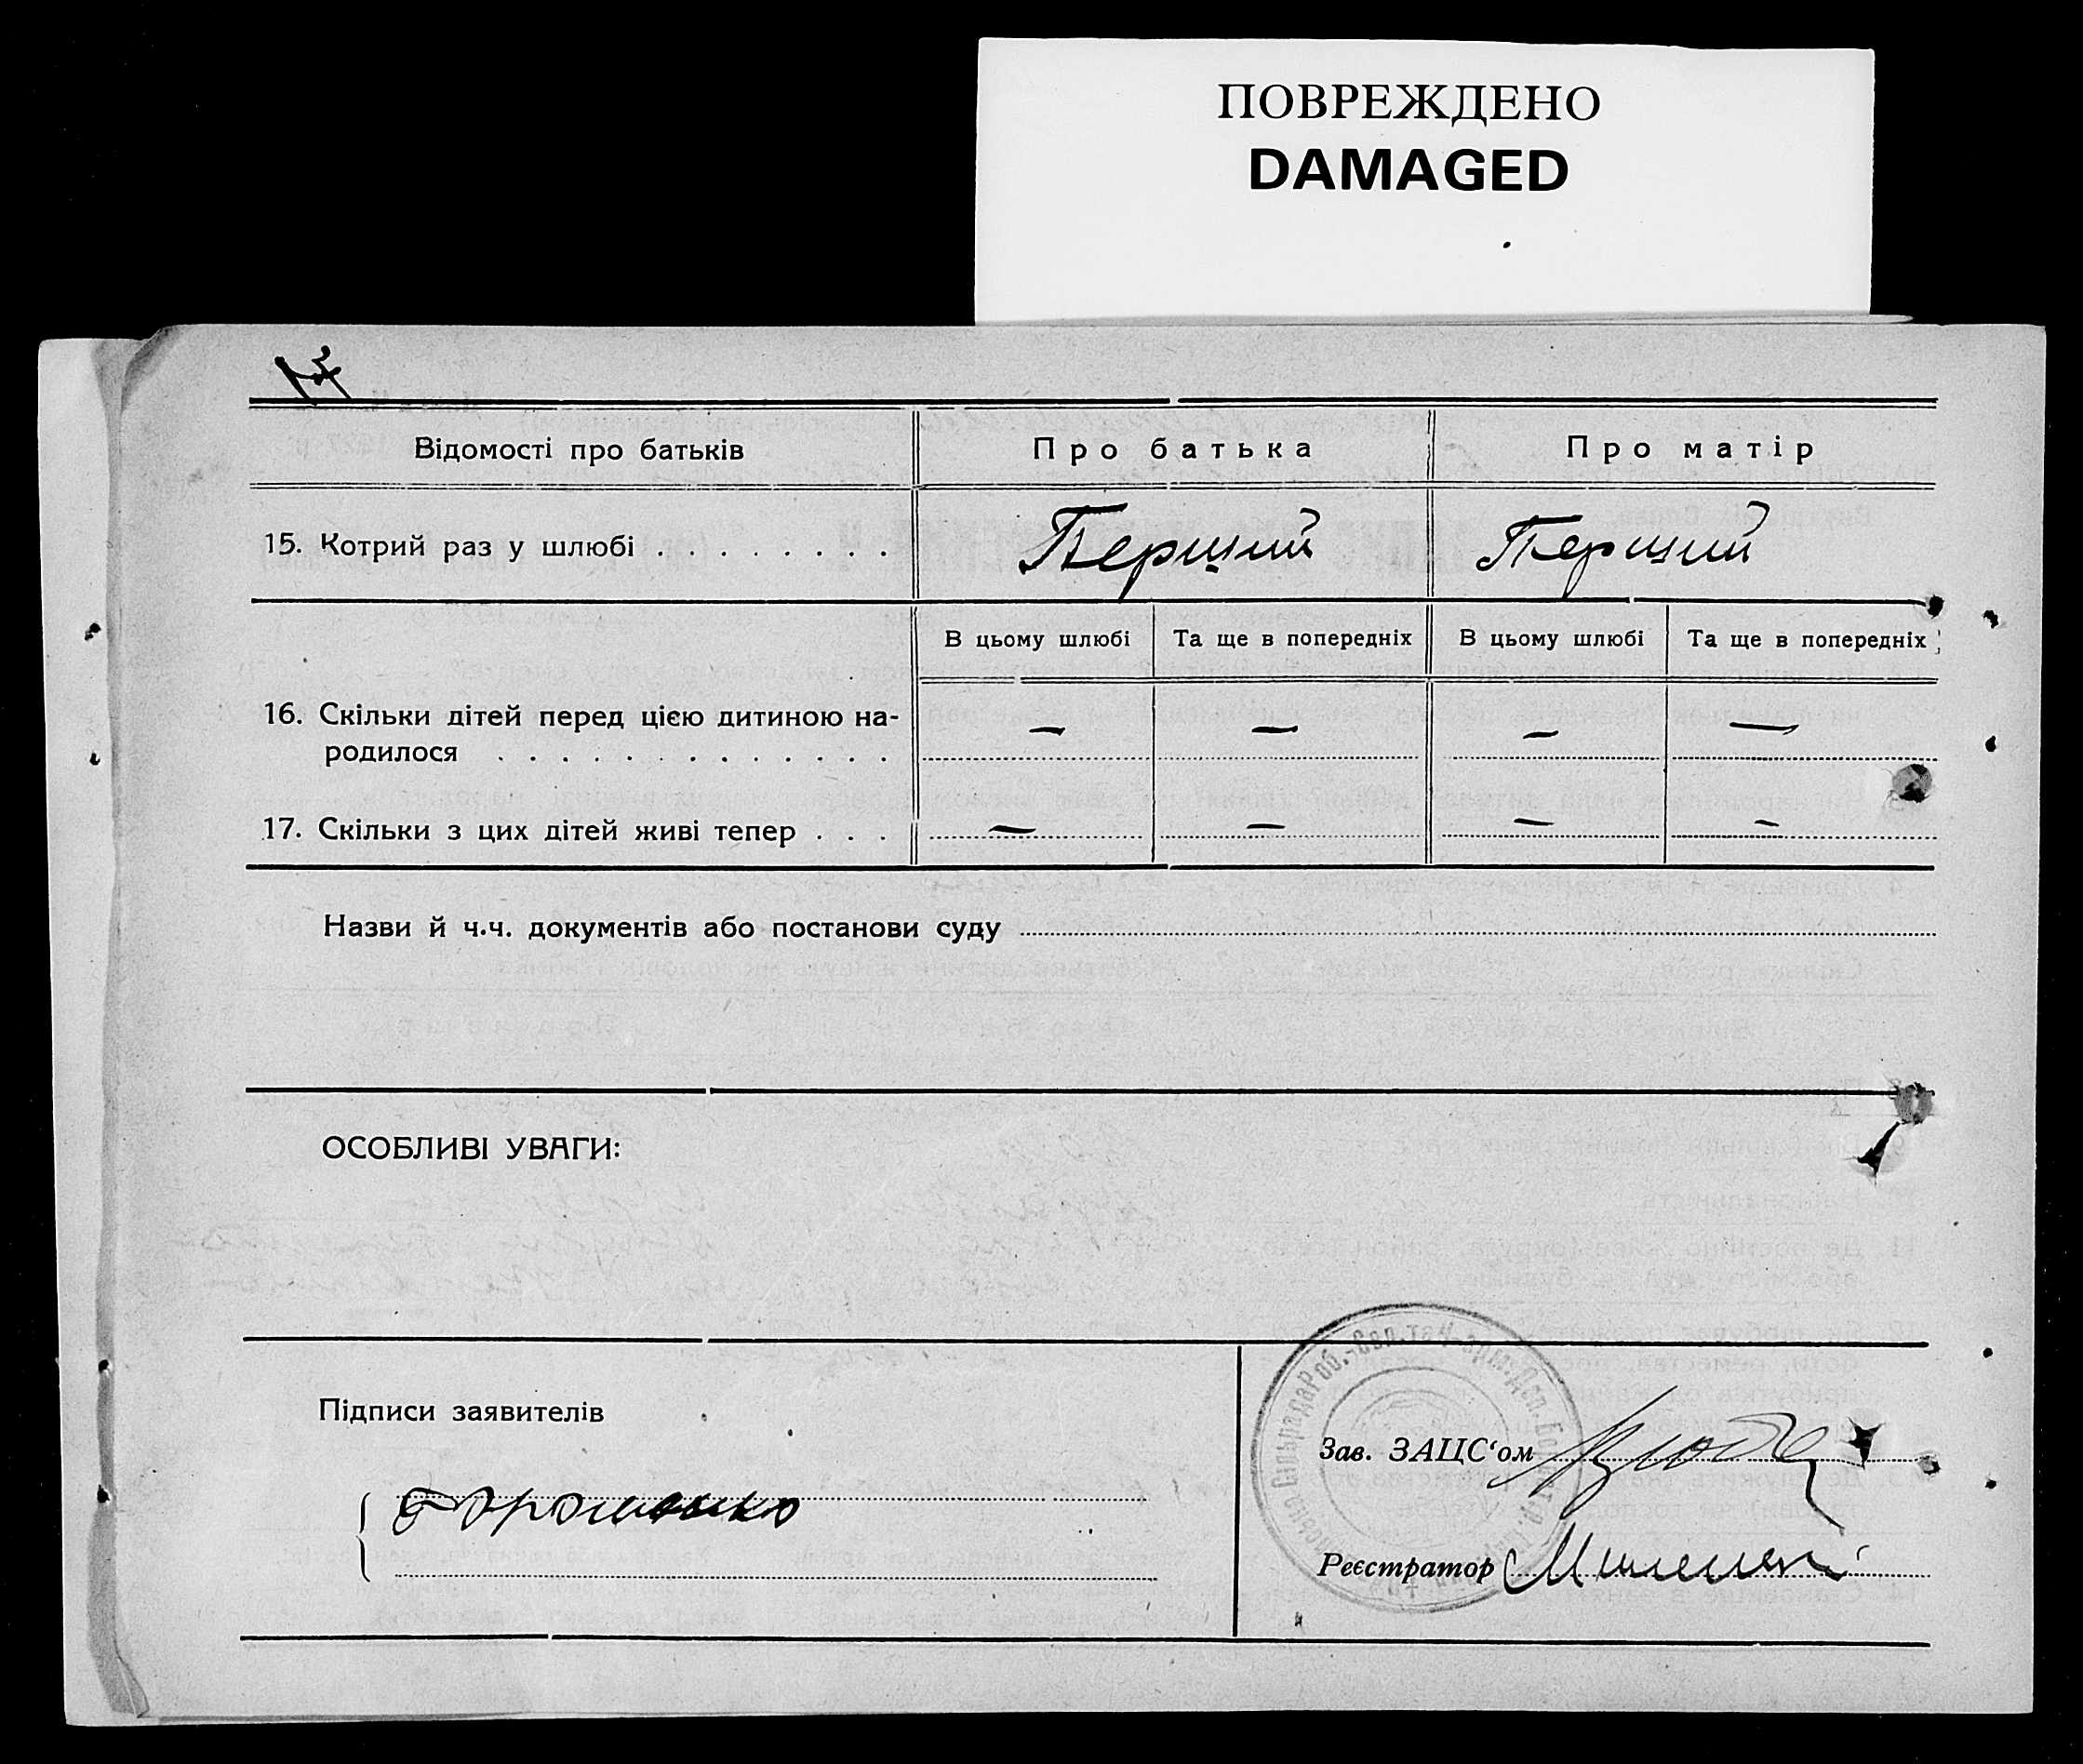 ПОВРЕЖДЕНО
DAMAGED
Відомості про батьків
Про батька
Про матір
15. Котрий раз у шлюбі . . . . . . . .
Перший
Перший
В цьому шлюбі
Та ще в попередніх
В цьому шлюбі
Та ще в попередніх
16. Скільки дітей перед цією дитиною на-
родилося . . . . . . . . . . . . .
— — — —
17. Скільки з цих дітей живі тепер . . .
— — — —
Назви й ч.ч. документів або постанови суду
ОСОБЛИВІ УВАГИ:
Підписи заявителів
Зав. ЗАЦС‘ом
Реєстратор